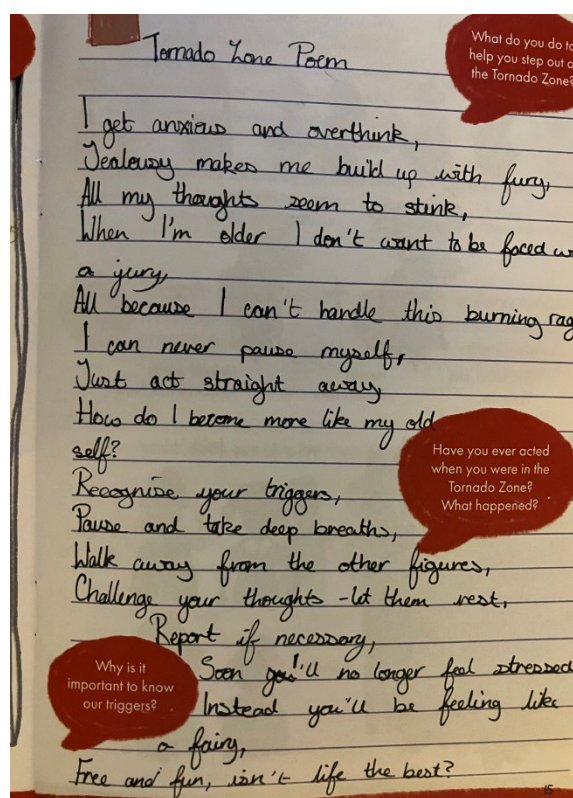 Tornado Zone Poem
What do you do to
help you step out o
the Tornado Zone?
I get anxious and overthink,
Jealousy makes me build up with fury,
All my thoughts seem to stink,
When I'm older I don't want to be faced w
a jury,
All because I can't handle this burning rag
I can never pause myself,
Just act straight away
How do I become more like my old
self?
Have you ever acted
when you were in the
Tornado Zone?
What happened?
Recognise your triggers,
Pause and take deep breaths,
Walk away from the other figures,
Challenge your thoughts - let them rest,
Report if necessary,
Why is it
important to know
our triggers?
Soon you'll no longer feel stressed
Instead you'll be feeling like
a fairy,
Free and fun, isn't life the best?
15